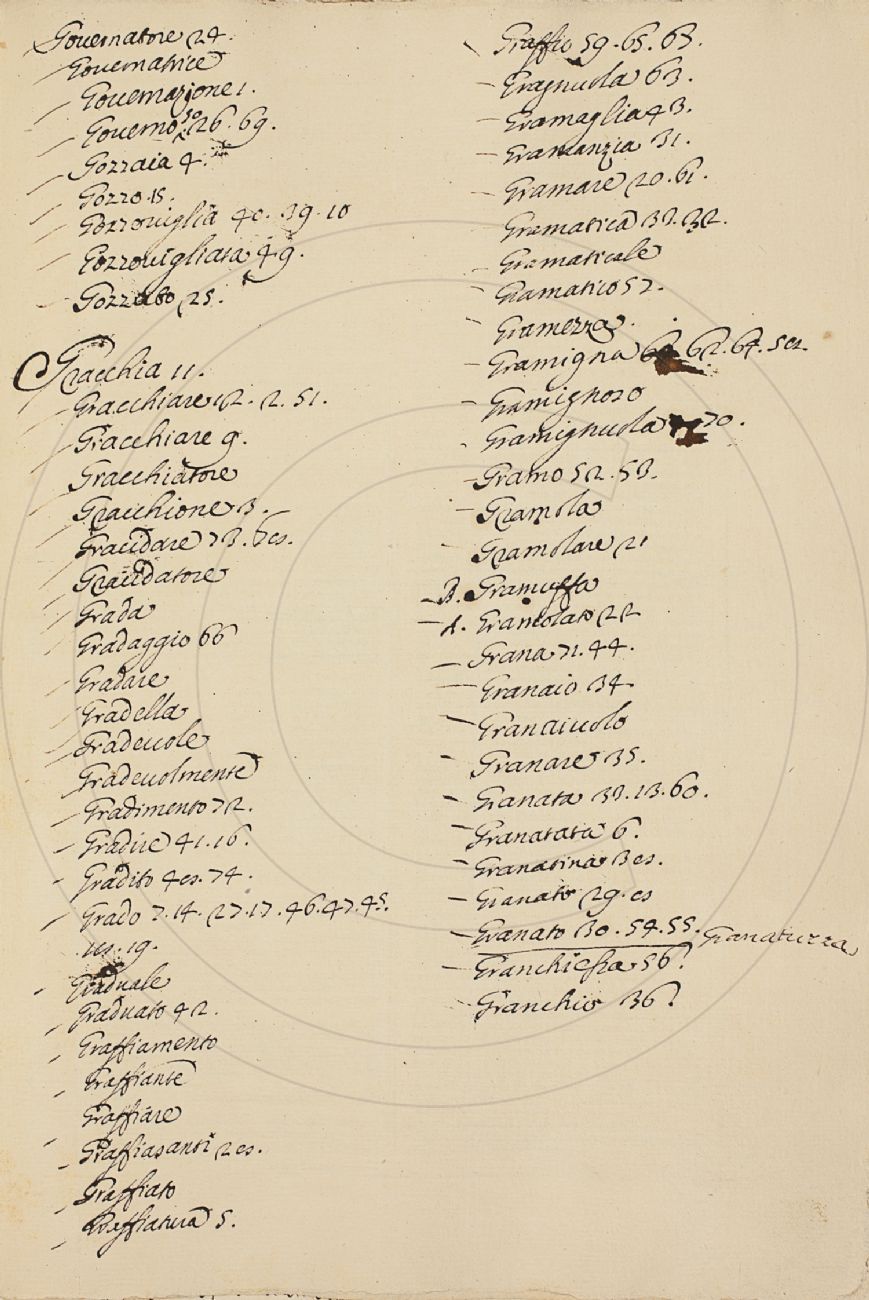 Gouernatore 24.
Gouernatrice
Gouernazione 1.
Gouerno 50 26. 69.
Gozzaia 4.
Gozzo. 15.
Gozzouiglia 40. 39. 10
Gozzouigliata 49.
Gozzuto 25.
Gracchia 11.
Gracchiare 12. 2. 51.
Gracchiare 9.
Gracchiatore
Gracchione 3.
Gracidare 73. 7es.
Gracidatore
Grada
Gradaggio 66
Gradare
Gradella
Gradeuole
Gradeuolmente
Gradimento 72.
Gradire 41. 16.
Gradito 4es. 74.
Grado 7. 14. 27. 17. 46. 47. 45.
1es. 19.
Graduale
Graduato 42.
Graffiamento
Graffiante
Graffiare
Graffiasanti 2es.
Graffiato
Graffiatura 5.
Graffio 59. 65. 63.
Gragnuola 63.
Gramaglia 43.
Gramanzia 31.
Gramare 20. 61.
Gramatica 33. 32.
Gramaticale
Gramatico 57.
Gramezza.
Gramigna 62. 64. 5es.
Gramignoso
Gramignuola 70.
Gramo 52. 53.
Gramola
Gramolare 21
B. Gramuffa
A. Gramolato 22
Grana 71. 44.
Granaio 34
Granaiuolo
Granare 35.
Granata 33. 13. 60.
Granatata 6.
Granatina 3es.
Granato 29. es
Granato 30. 54. 55. Granatuzza
Granchiessa 56.
Granchio 36.